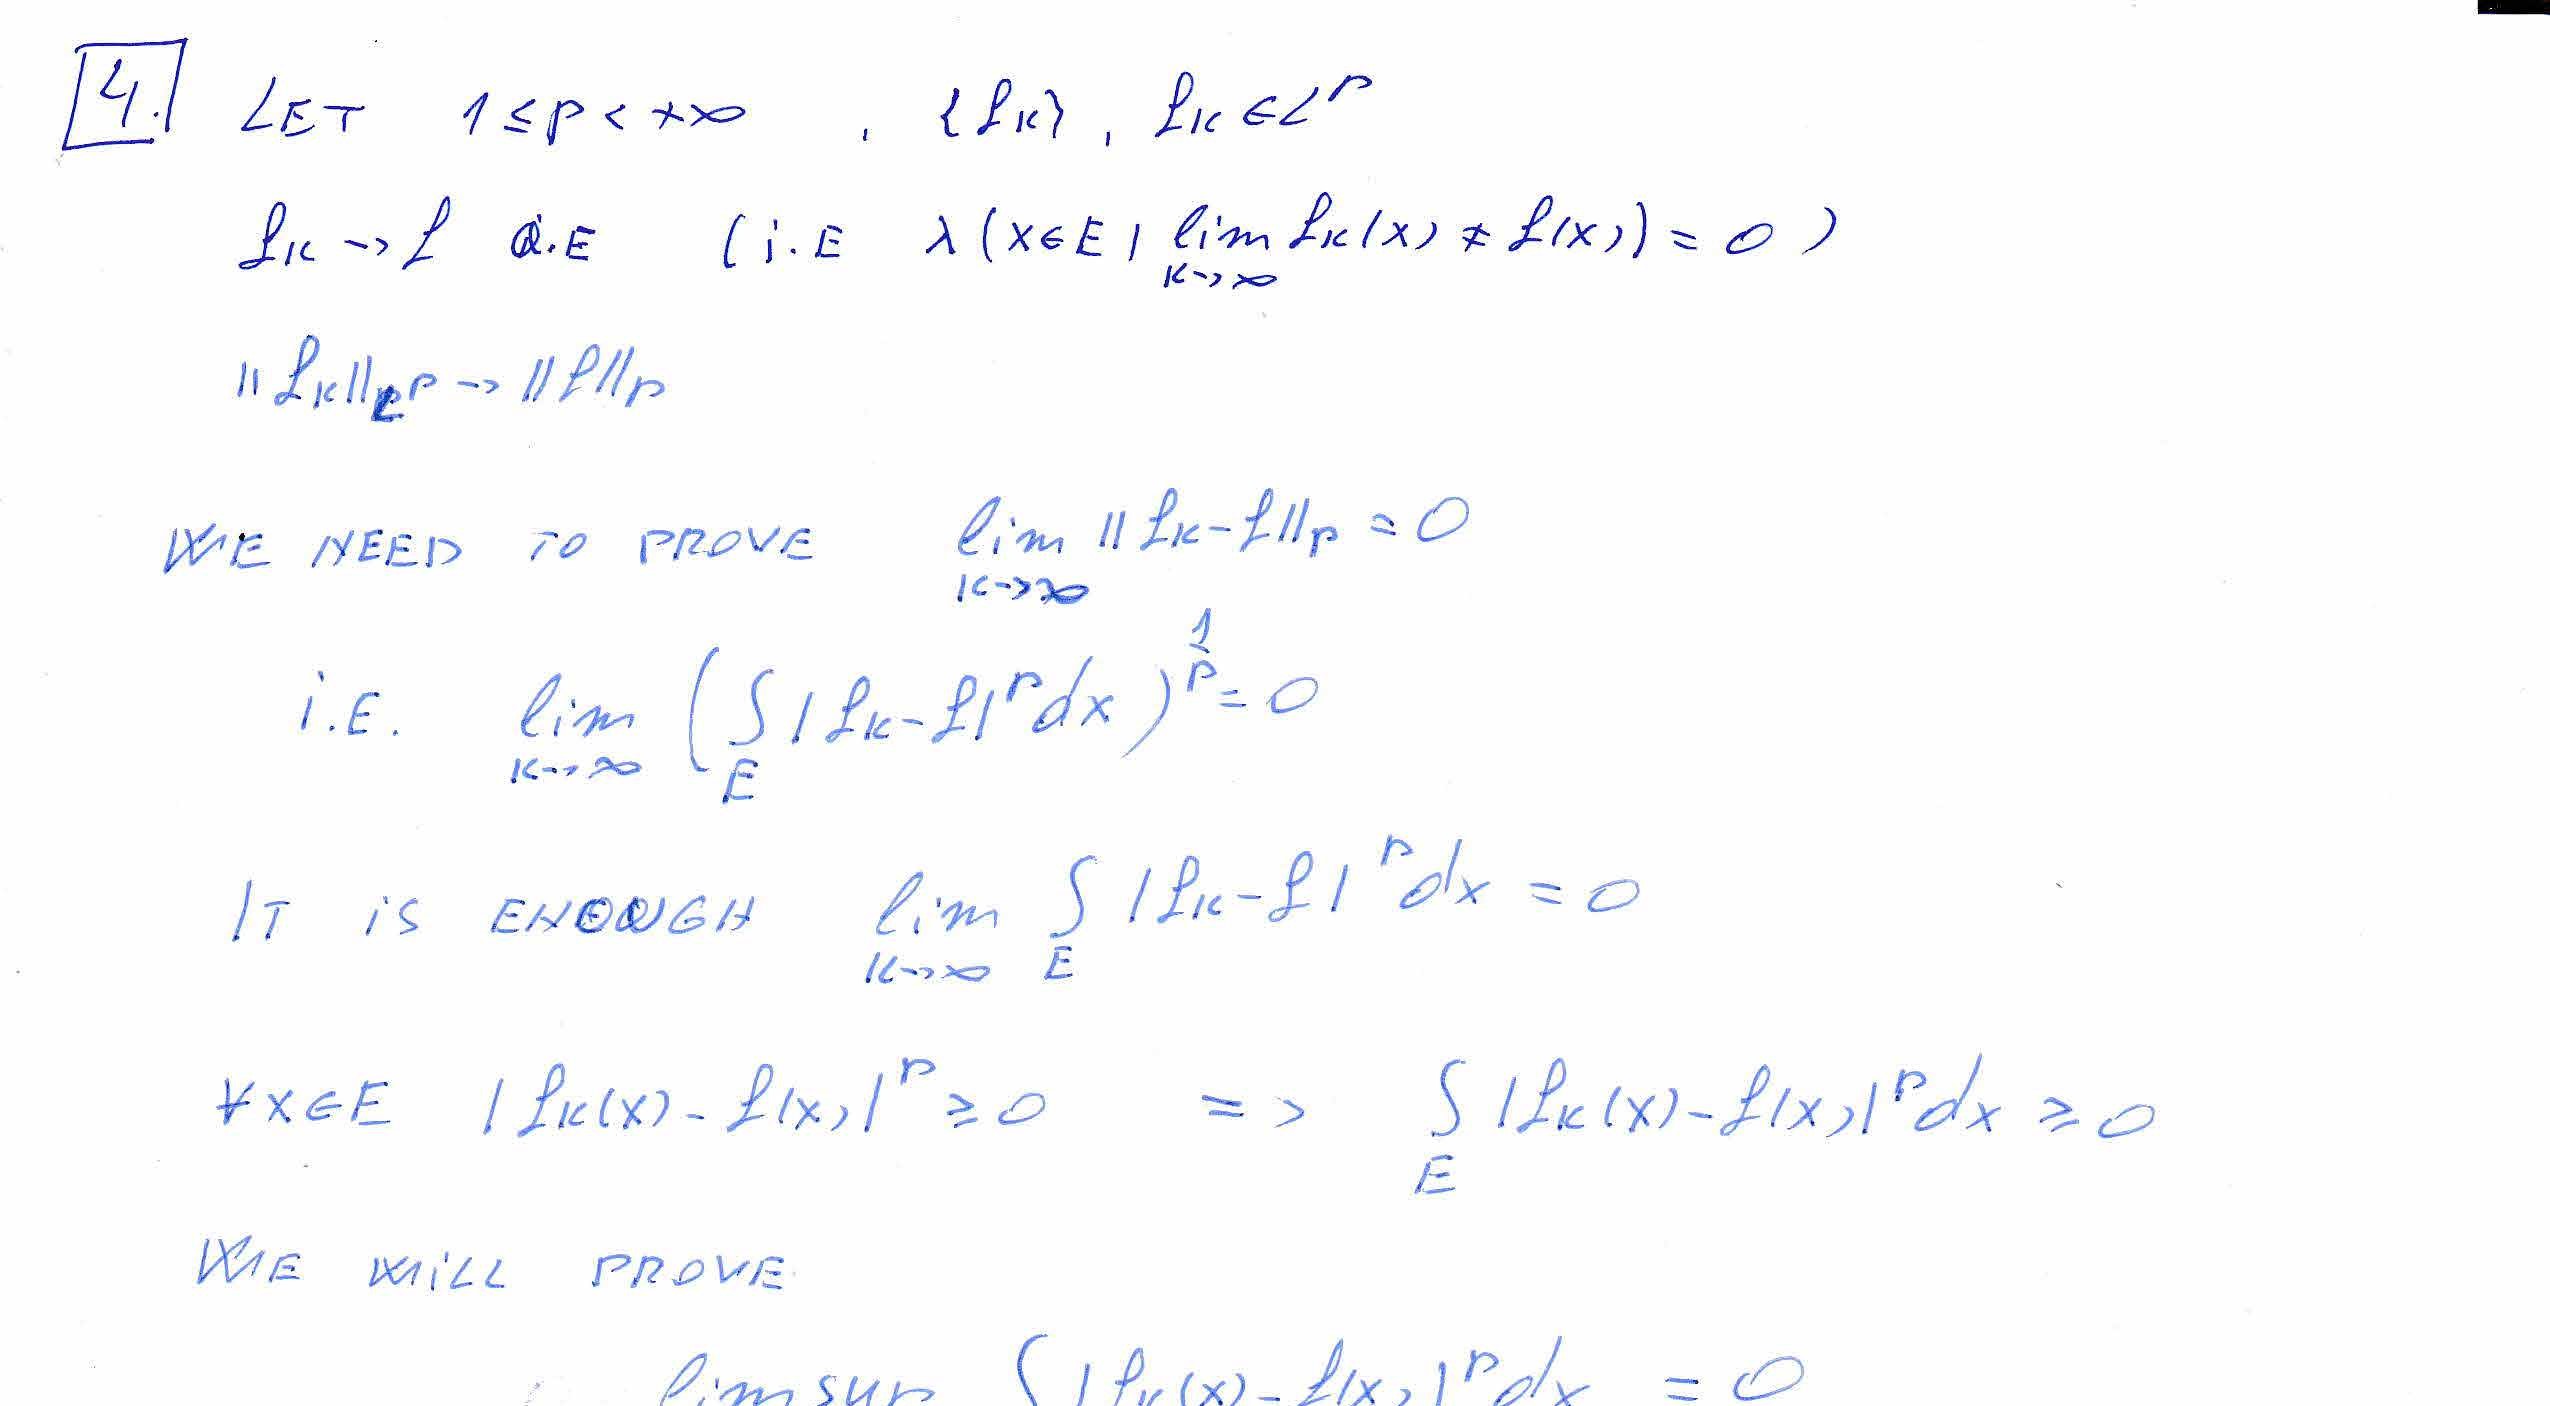 4. LET 1 ≤ p < +∞ , {f_k} , f_k ∈ L^p
f_k → f a.E (i.E λ(x∈E | lim_{k→∞} f_k(x) ≠ f(x)) = 0)
||f_k||_{L^p} → ||f||_p
WE NEED TO PROVE lim_{k→∞} ||f_k - f||_p = 0
i.E. lim_{k→∞} (∫_E |f_k - f|^p dx)^{1/p} = 0
IT IS ENOUGH lim_{k→∞} ∫_E |f_k - f|^p dx = 0
∀x∈E |f_k(x) - f(x)|^p ≥ 0 => ∫_E |f_k(x) - f(x)|^p dx ≥ 0
WE WILL PROVE
lim sup ∫ |f_k(x) - f(x)|^p dx = 0